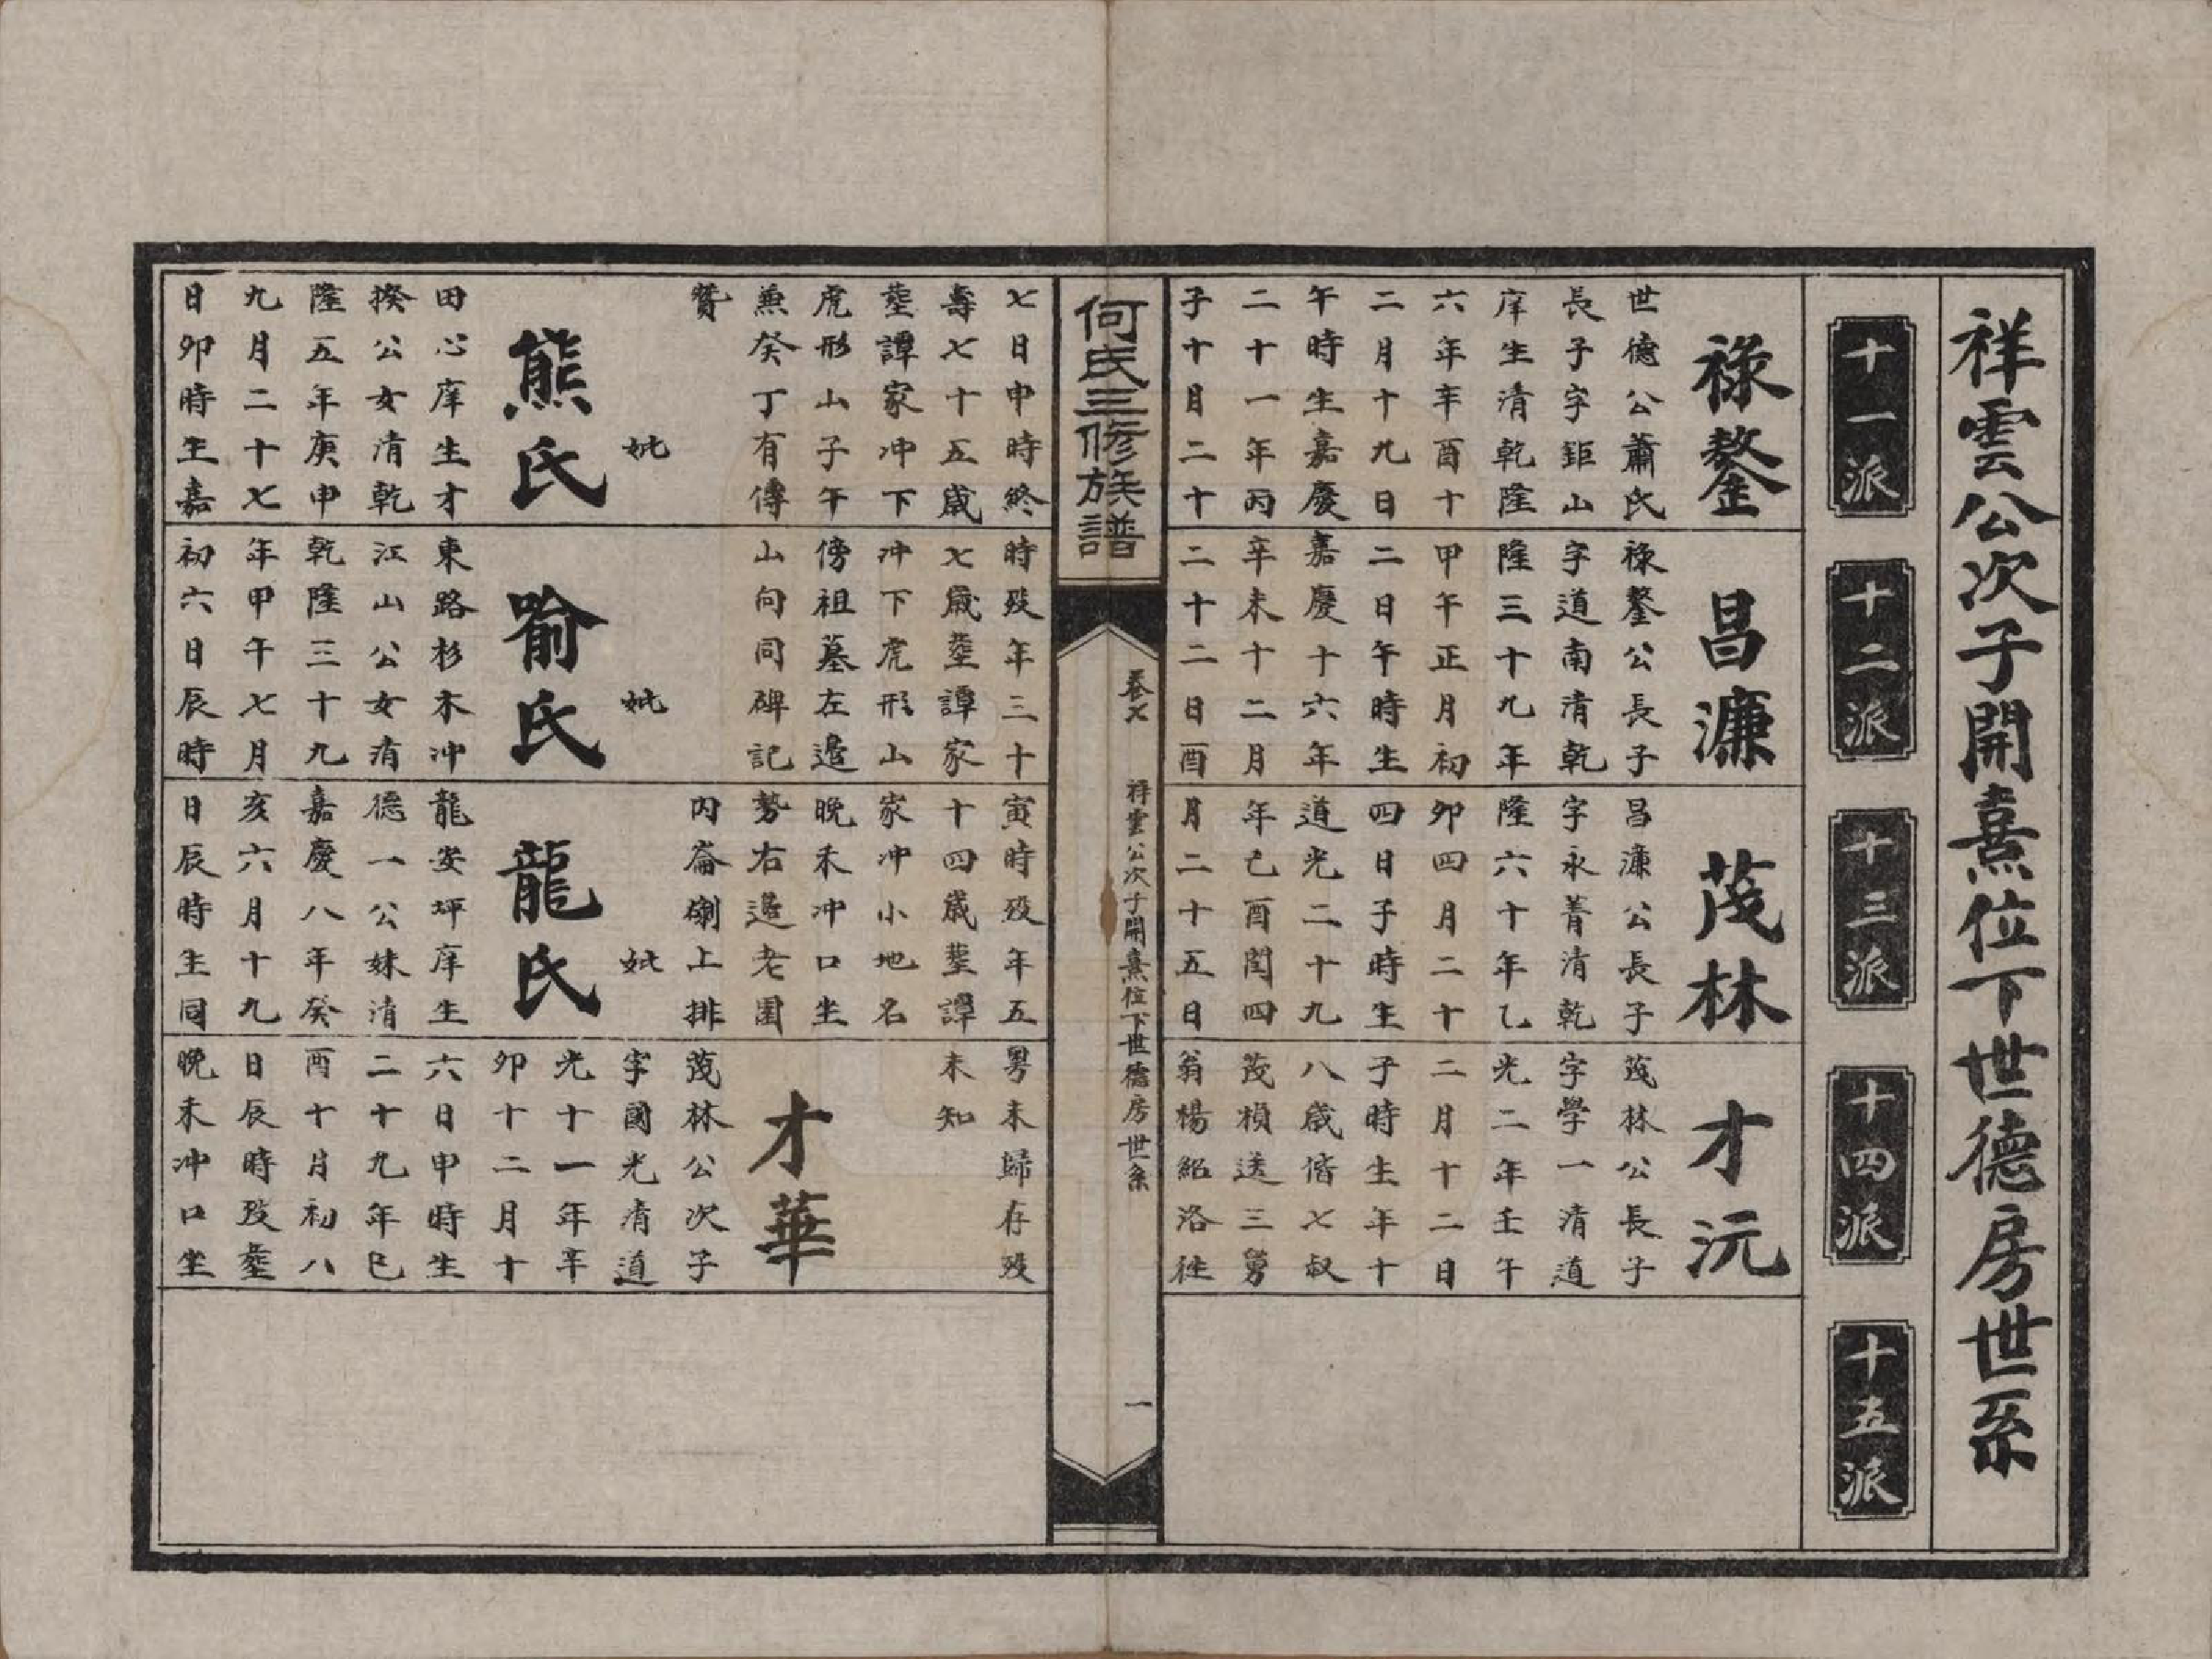 祥雲公次子開熹位下世德房世系
十一派
十二派
十三派
十四派
十五派
祿鏊
世德公蕭氏
長子字鉅山
庠生清乾隆
六年辛酉十
二月十九日
午時生嘉慶
二十一年丙
子十月二十
七日申時終
壽七十五歲
塟譚家冲下
虎形山子午
兼癸丁有傳
贊
妣
熊氏
田心庠生才
揆公女清乾
隆五年庚申
九月二十七
日卯時生嘉
昌濂
祿鏊公長子
字道南清乾
隆三十九年
甲午正月初
二日午時生
嘉慶十六年
辛未十二月
二十二日酉
時殁年三十
七歲塟譚家
冲下虎形山
傍祖墓左邉
山向同碑記
妣
喻氏
東路杉木冲
江山公女清
乾隆三十九
年甲午七月
初六日辰時
茂林
昌濂公長子
字永菁清乾
隆六十年乙
卯四月二十
四日子時生
道光二十九
年己酉閏四
月二十五日
寅時殁年五
十四歲塟譚
家冲小地名
晚禾冲口坐
勢右邉老園
内崙㓾上排
妣
龍氏
龍安坪庠生
德一公妹清
嘉慶八年癸
亥六月十九
日辰時生同
才沅
茂林公長子
字學一清道
光二年壬午
二月十二日
子時生年十
八歲偕七叔
茂楨送三舅
翁楊紹洛徃
粤未歸存殁
未知
才華
茂林公次子
字國光清道
光十一年辛
卯十二月十
六日申時生
二十九年己
酉十月初八
日辰時殁塟
晚禾冲口坐
何氏三修族譜
卷七
祥雲公次子開熹位下世德房世系
一